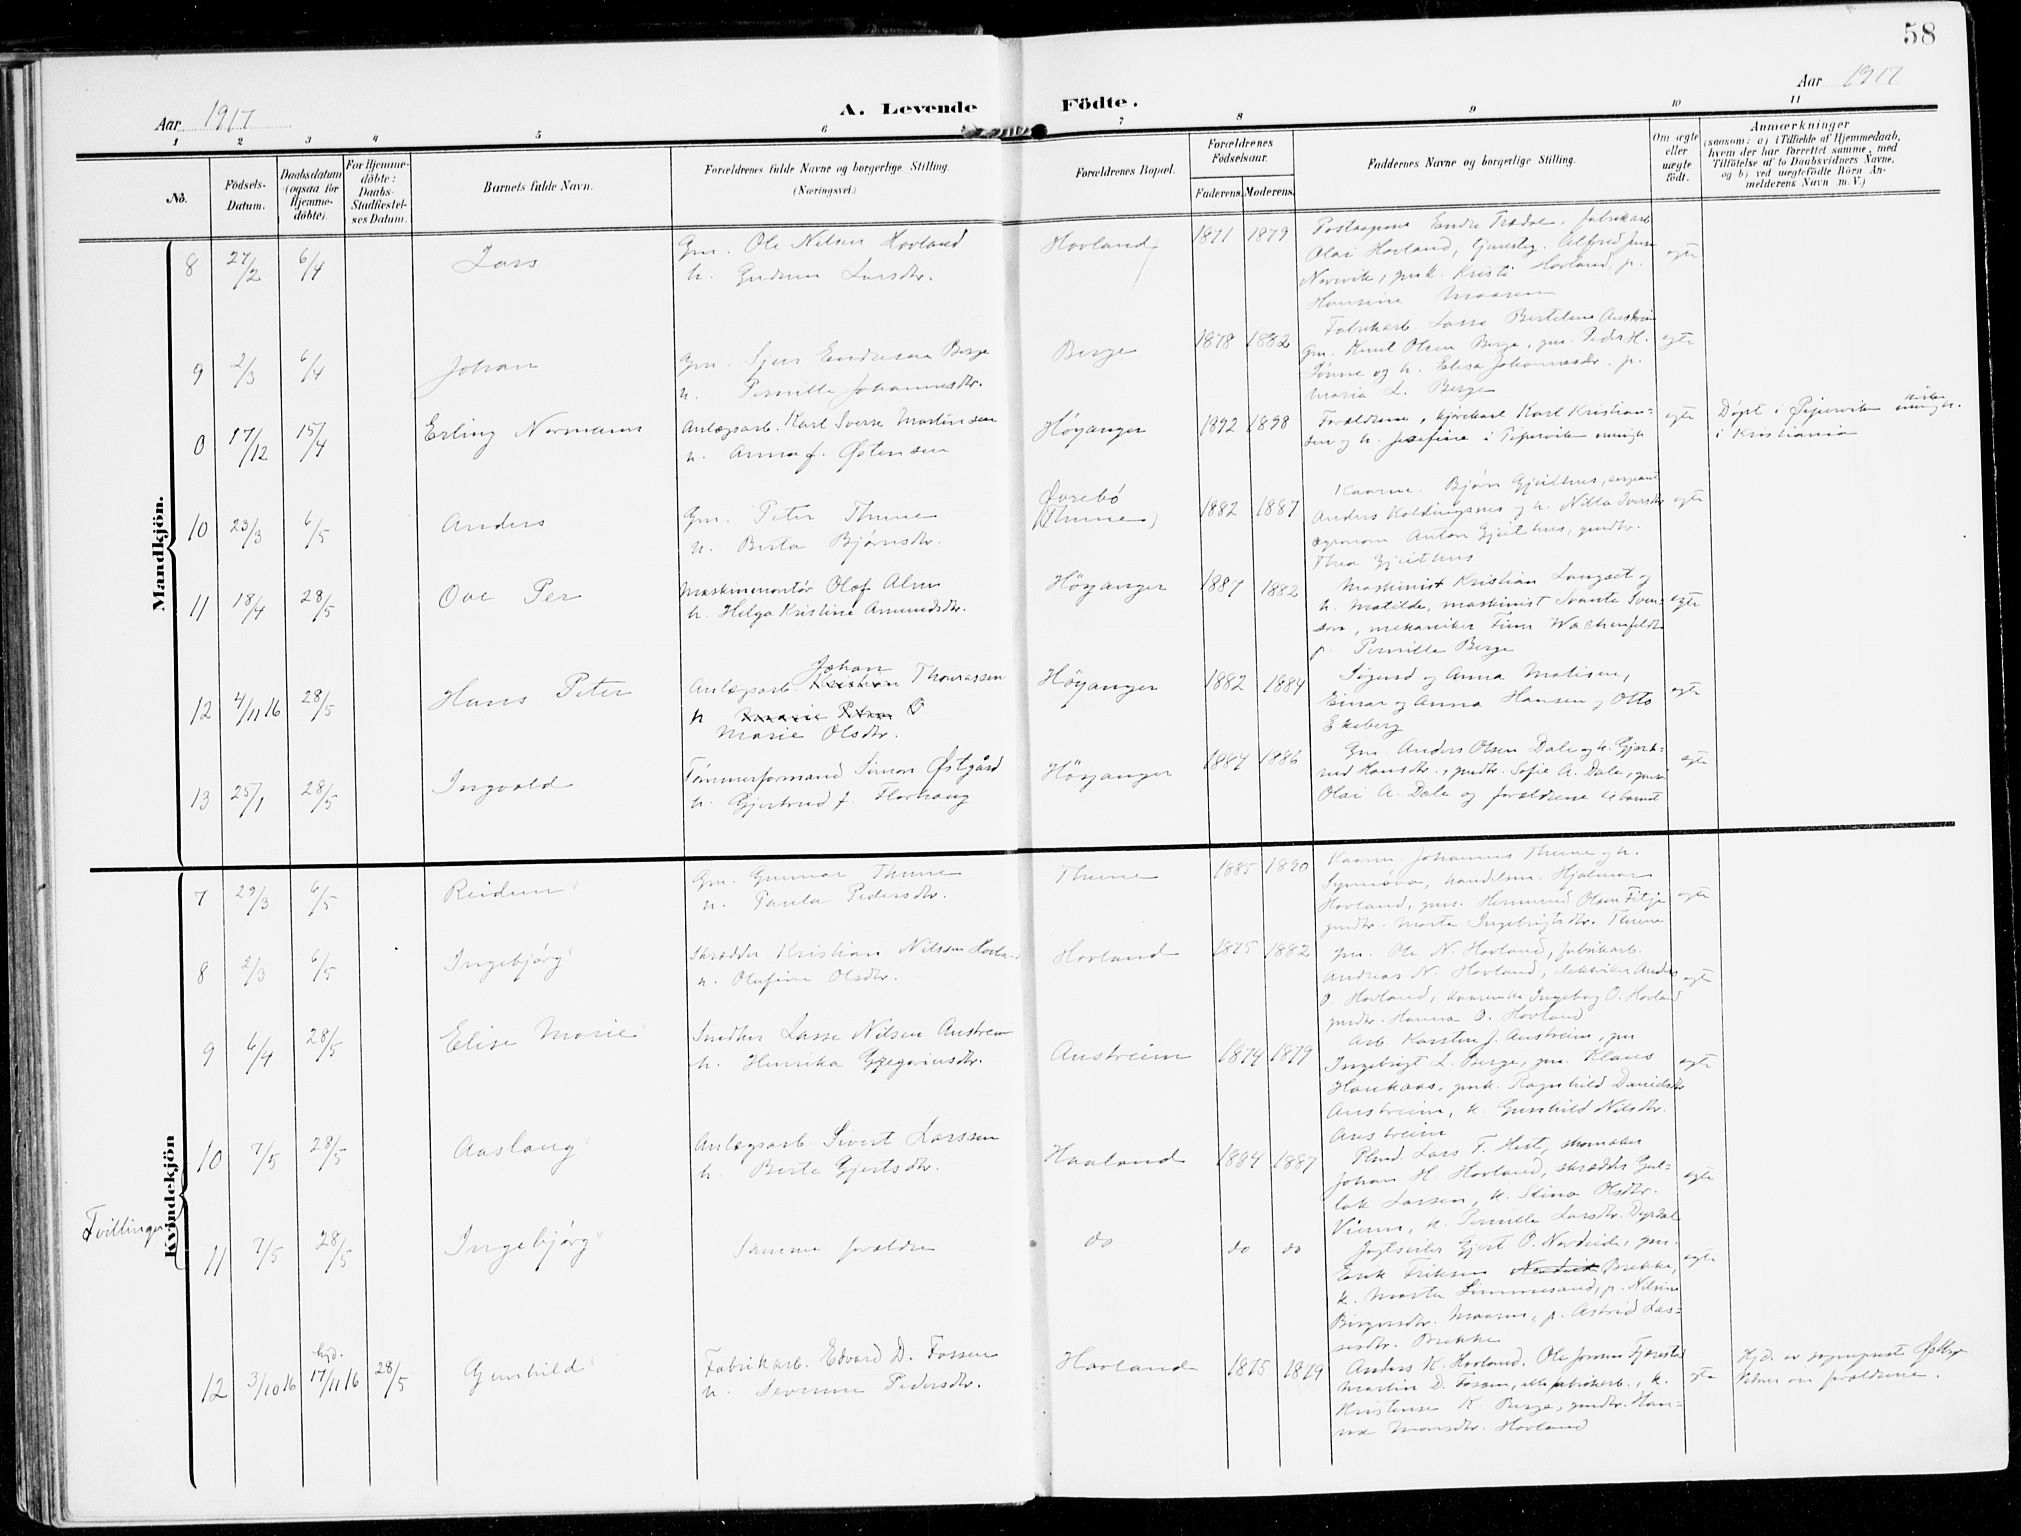 58
Aar 1917
A. Levende Födte.
Aar 1917
1 2 3 4 5 6 7 8 9 10 11
No.
Födsels-Datum.
Daabsdatum (ogsaa for Hjemme-döbte).
For Hjemme-döbte: Daabs-Stadfæstel-ses Datum.
Barnets fulde Navn.
Forældrenes fulde Navne og borgerlige Stilling.
(Næringsvei.)
Forældrenes Bopæl.
Forældrenes Födselsaar.
Faderens. Moderens.
Faddernes Navne og borgerlige Stilling.
Om ægte eller uægte födt.
Anmærkninger
(saasom: a) i Tilfælde af Hjemmedaab, hvem der har forrettet samme, med Tilföielse af to Daabsvidners Navne, og b) ved uægtefödte Börn An-melderens Navn m. V.)
Mandkjön.
8 27/2 6/4 Lars
Gm. Ole Nilsen Hovland
h. Gudrun Larsdtr.
Hovland 1871 1879
Olai Hovland,
Hansine Maaren
ægte
9 2/3 6/4 Johan
Gm. Sjur Endresen Berge
h. Pernille Johannesdtr.
Berge 1878 1882
Fabrikarb. Lasse Bertelsen Austreim
Gm. Knut Olsen Berge, gm. Peder H.
Tønne og h. Elisa Johannesdtr. p.
Maria L. Berge
ægte
0 17/12 15/4 Erling Normann
Anlægsarb. Karl Sverre Martinsen
h. Anna f. Østensen
Høyanger 1892 1898
Forældrene, kjørekarl Karl Kristian-
sen og h. Josefine i Pipervik menigh
ægte
Døpt i Pipervik menigh.
i Kristiania
10 23/3 6/5 Anders
Gm. Peter Thune
h. Berta Bjørnsdtr.
Øvrebö
(Thune)
1882 1887
Kaarm. Bjørn Gjeithus, sergeant
Anders Koldingsnes og h. Nilla Iversdtr
agronom Anton Gjeithus, gmdtr.
Thea Gjeithus
ægte
11 18/4 28/5 Ove Per
Maskinmontör Olaf Alm
h. Helga Kristine Amundsdtr.
Høyanger 1887 1882
Maskinist Kristian Langset og
h. Matilde, maskinist Svante Sven-
son, mekaniker Finn Wachenfeldt
p. Pernille Berge
ægte
12 4/11 16 28/5 Hans Peter
Johan
Anlægsarb. Kristian Thomassen
h
Marie Olsdtr.
Høyanger 1882 1884
Sigurd og Anna Matisen,
Einar og Anna Hansen og Otto
Ekeberg
ægte
13 25/1 28/5 Ingvald
Tømmerformand Simon Østgård
h. Gjertrud f. Flørhaug
Høyanger 1884 1886
Gm. Anders Olsen Dale og h. Gjert-
rud Hansdtr., gmdtr. Sofie A. Dale, gmsn
Olai A. Dale og forældrene til barnet
ægte
Kvindekjön
7 29/3 6/5 Reidun
Gm. Gunnar Thune
h. Paula Pedersdtr.
Thune 1885 1890
Kaarm. Johannes Thune og h.
Synnöva, handelsm. Hjalmar
Hovland, gms. Hermund Olsen Fitje
gmdtr. Marta Ingebrigtsdtr. Thune
ægte
8 2/3 6/5 Ingebjørg
Skrædder Kristian Nilssen Hovland
h. Olufine Olsdtr.
Hovland 1875 1882
gm. Ole N. Hovland, fabrikarb.
Andreas N. Hovland, elektriker Anders
O. Hovland, Ingeborg O. Hovland
gmdtr. Hanna O. Hovland
ægte
9 6/4 28/5 Elise Marie
Lasse Nilsen Austreim
h. Henrika Gregoriusdtr.
Austreim 1874 1879
Arb. Karsten J. Austreim, gm
Ingebrigt L. Berge, gm. Klaus
Haukaas, gmk. Ragnhild Danielsdtr
Austreim, k. Gunhild Nilsdtr.
Austreim
ægte
Tvillinger
10 7/5 28/5 Aaslaug
Anlægsarb. Sivert Larssen
h. Berte Gjertsdtr.
Hovland 1884 1887
Lars T. Heste, skomaker
Johan H. Hovland, skrædder Gul-
lak Larsen, k. Stina Olsdtr.
k. Pernille Larsdtr. Dyrdal
ægte
11 7/5 28/5 Ingebjørg
Samme forældre
do do do
Gjert O. Nordeide, gm.
Erik Eriksen Nordeide Brekke,
k. Marta Simmesand, p. Nilsine
Birgersdtr. Maaren, p. Astrid Las-
sesdtr. Brekke
ægte
12 3/10 16 hjd. 17/11 16 28/5 Gunhild
Fabrikarb. Edvard D. Fossen
h. Severine Pedersdtr.
Hovland 1875 1879
Anders K. Hovland, Ole Jensen Fjærestad
Martin D. Fossen, alle fabrikarb., k.
Kristense K. Berge, gmdtr. Han-
na Monsdtr. Hovland
ægte
Hjd. av sogneprest Østbye
Vidner var forældrene.